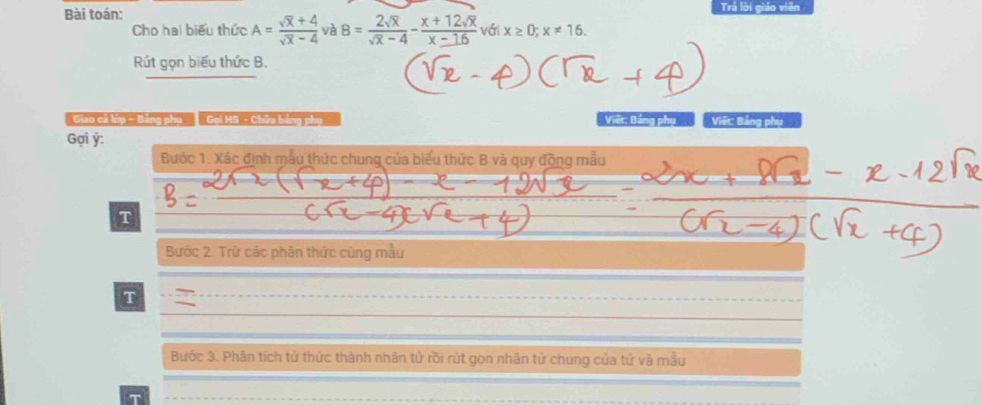 Bài toán:
Trả lời giáo viên
Cho hai biểu thức A = (√x + 4)/(√x - 4) và B = 2√x/(√x - 4) - (x + 12√x)/(x - 16) với x ≥ 0; x ≠ 16.
Rút gọn biểu thức B.
(√x - 4)(√x + 4)
Giao cả lớp - Bảng phụ
Gọi HS - Chữa bảng phụ
Viết: Bảng phụ
Viết: Bảng phụ
Gợi ý:
Bước 1. Xác định mẫu thức chung của biểu thức B và quy đồng mẫu
B = (2√x(√x+4) - x - 12√x)/((√x-4)(√x+4)) = (2x + 8√x - x - 12√x)/((√x-4)(√x+4))
T
Bước 2. Trừ các phân thức cùng mẫu
T
=
Bước 3. Phân tích tử thức thành nhân tử rồi rút gọn nhân tử chung của tử và mẫu
T